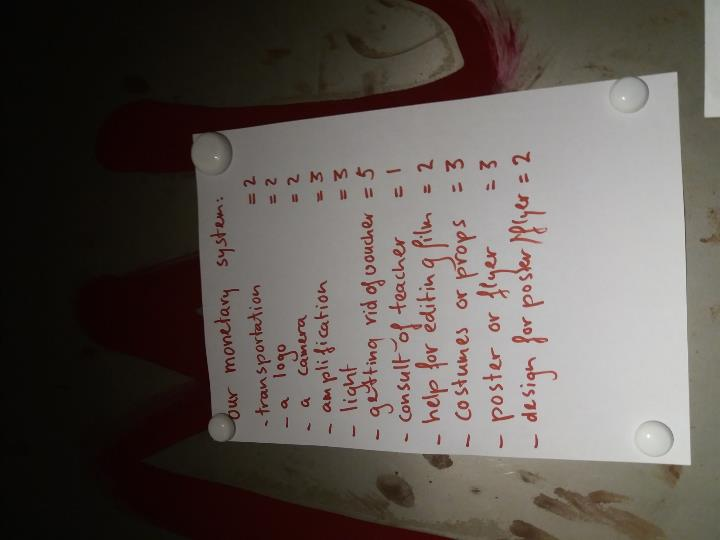 our monetary system:
- transportation = 2
- a logo = 2
- a camera = 2
- amplification = 3
- light = 3
- getting rid of voucher = 5
- consult of teacher = 1
- help for editing film = 2
- costumes or props = 3
- poster or flyer = 3
- design for poster/flyer = 2